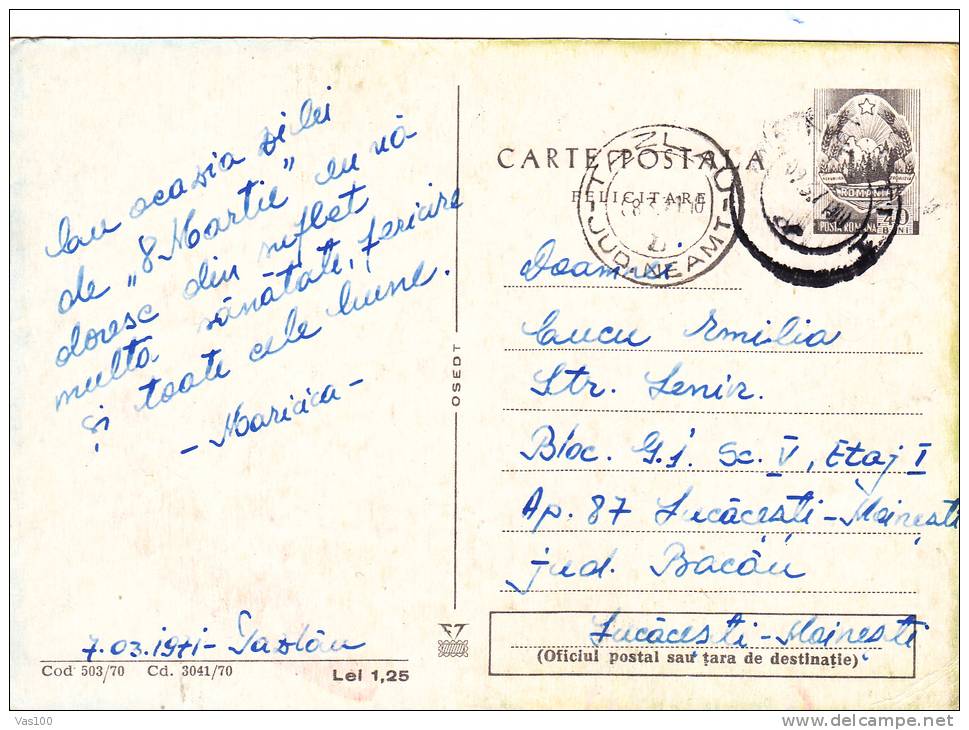 Cu ocazia zilei
de „8 Martie” eu vă
doresc din suflet
multă sănătate, fericire
și toate cele bune.
- Maricica -
7.03.1971 - Tazlău
Cod 503/70 Cd. 3041/70
Lei 1,25
OSEDT
CARTE POSTALA
FELICITARE
TAZLAU
JUD. NEAMT
ROMANIA
POSTA ROMANA
40
BANI
Doamnei
Cucu Emilia
Str. Lenin
Bloc. G.1. Sc. V, Etaj I
Ap. 87 Lucăcești - Moinești
jud. Bacău
Lucăcești - Moinești
(Oficiul postal sau țara de destinație)
Vas100
delcampe.net